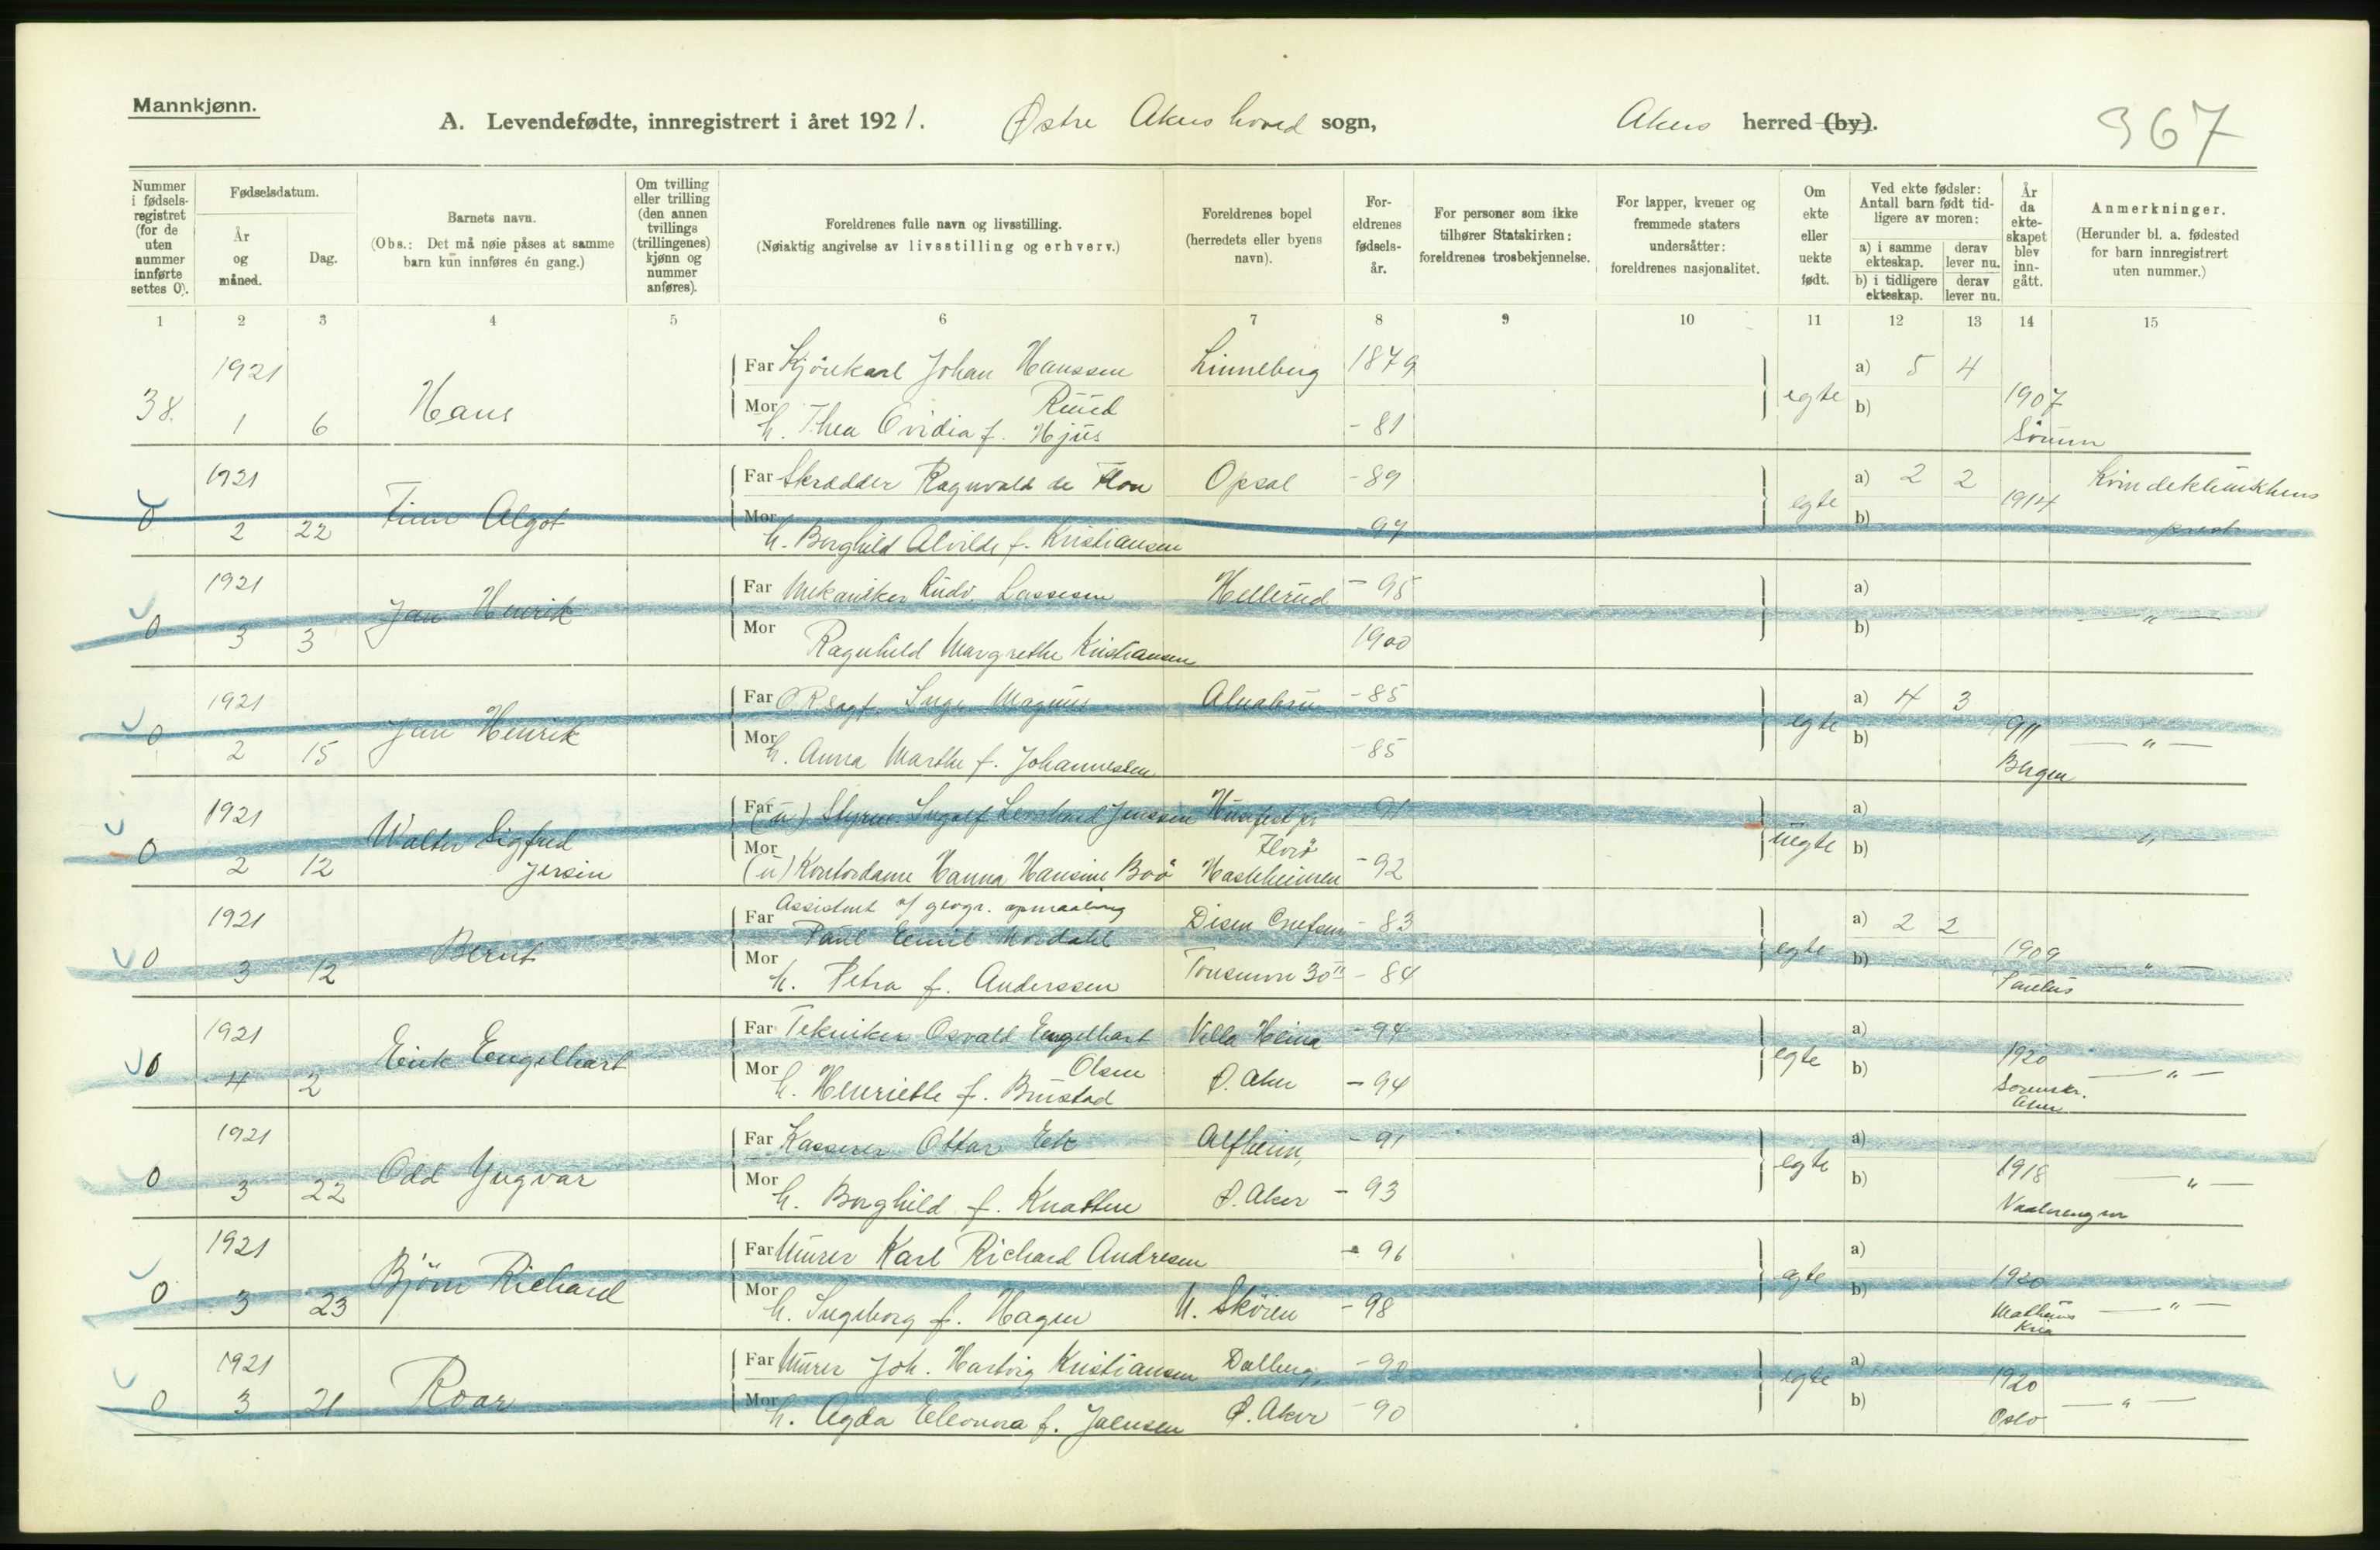 Mannkjønn.
A. Levendefødte, innregistrert i året 1921. Østre Akers hoved sogn, Akers herred (by). 367
Nummer i fødselsregistret (for de uten nummer innførte settes 0).
Fødselsdatum.
År og måned.
Dag.
Barnets navn.
(Obs.: Det må nøie påses at samme barn kun innføres én gang.)
Om tvilling eller trilling (den annen tvillings (trillingenes) kjønn og nummer anføres).
Foreldrenes fulle navn og livsstilling.
(Nøiaktig angivelse av livsstilling og erhverv.)
Foreldrenes bopel (herredets eller byens navn).
Foreldrenes fødselsår.
For personer som ikke tilhører Statskirken: foreldrenes trosbekjennelse.
For lapper, kvener og fremmede staters undersåtter: foreldrenes nasjonalitet.
Om ekte eller uekte født.
Ved ekte fødsler: Antall barn født tidligere av moren:
a) i samme ekteskap. derav lever nu.
b) i tidligere ekteskap. derav lever nu.
År da ekteskapet blev inngått.
Anmerkninger.
(Herunder bl. a. fødested for barn innregistrert uten nummer.)
1 2 3 4 5 6 7 8 9 10 11 12 13 14 15
1921 Far Kjørekarl Johan Hanssen Linneberg 1879 a) 5 4
38. 1 6 Hans Ruud egte b) 1907
Mor h. Thea Ovidia f. Hjus - 81 Sörum
1921 Far Skrædder Ragnvald de Flon Opsal - 89 a) 2 2 Kvindeklinikkens
0 2 22 Finn Algot egte b) 1914 prest
Mor h. Borghild Alvilde f. Kristiansen - 97
1921 Far Mekaniker Ludv. Lassesen Hellerud - 95 a)
0 3 3 Jan Henrik b) — " —
Mor Ragnhild Margrethe Kristiansen 1900
1921 Far ORsagf. Inge Magnus Alnabru - 85 a) 4 3
0 2 15 Jan Henrik egte b) 1911 — " —
Mor h. Anna Marthe f. Johannessen - 85 Bergen
1921 Far (u) Styrm. Ingolf Lenhard Jenssen - 91 a)
0 2 12 Walter Sigfred Jersin Florö uegte b) "
Mor (u) Kontordame Hanna Hansine Boö - 92
1921 Far Assistent v/ geogr. opmaaling Disen Grefsen - 83 a) 2 2
Paul Emil Nordahl
0 3 12 Bernt egte b) 1909 — " —
Mor h. Petra f. Anderssen Tonsenvn 30 - 84 Paulus
1921 Far Tekniker Osvald Engelhart Villa Heina - 94 a)
0 4 2 Eirik Engelhart Olsen egte b) 1920 — " —
Mor h. Henriette f. Bustad Ø. Aker - 94 Sorenskr. Aker
1921 Far Kasserer Ottar Ek Alfheim, - 91 a)
0 3 22 Odd Yngvar egte b) 1918 — " —
Mor h. Borghild f. Knatten Ø. Aker - 93 Vaalerengen
1921 Far Murer Karl Richard Andresen - 96 a)
0 3 23 Björn Richard egte b) 1920
Mor h. Ingeborg f. Hagen N. Skøien - 98 Matheus Kria — " —
1921 Far Murer Joh. Hartvig Kristiansen Dalberg, - 90 a)
0 3 21 Roar egte b) 1920
Mor h. Agda Eleonora f. Jalnsen Ø. Aker - 90 Oslo — " —